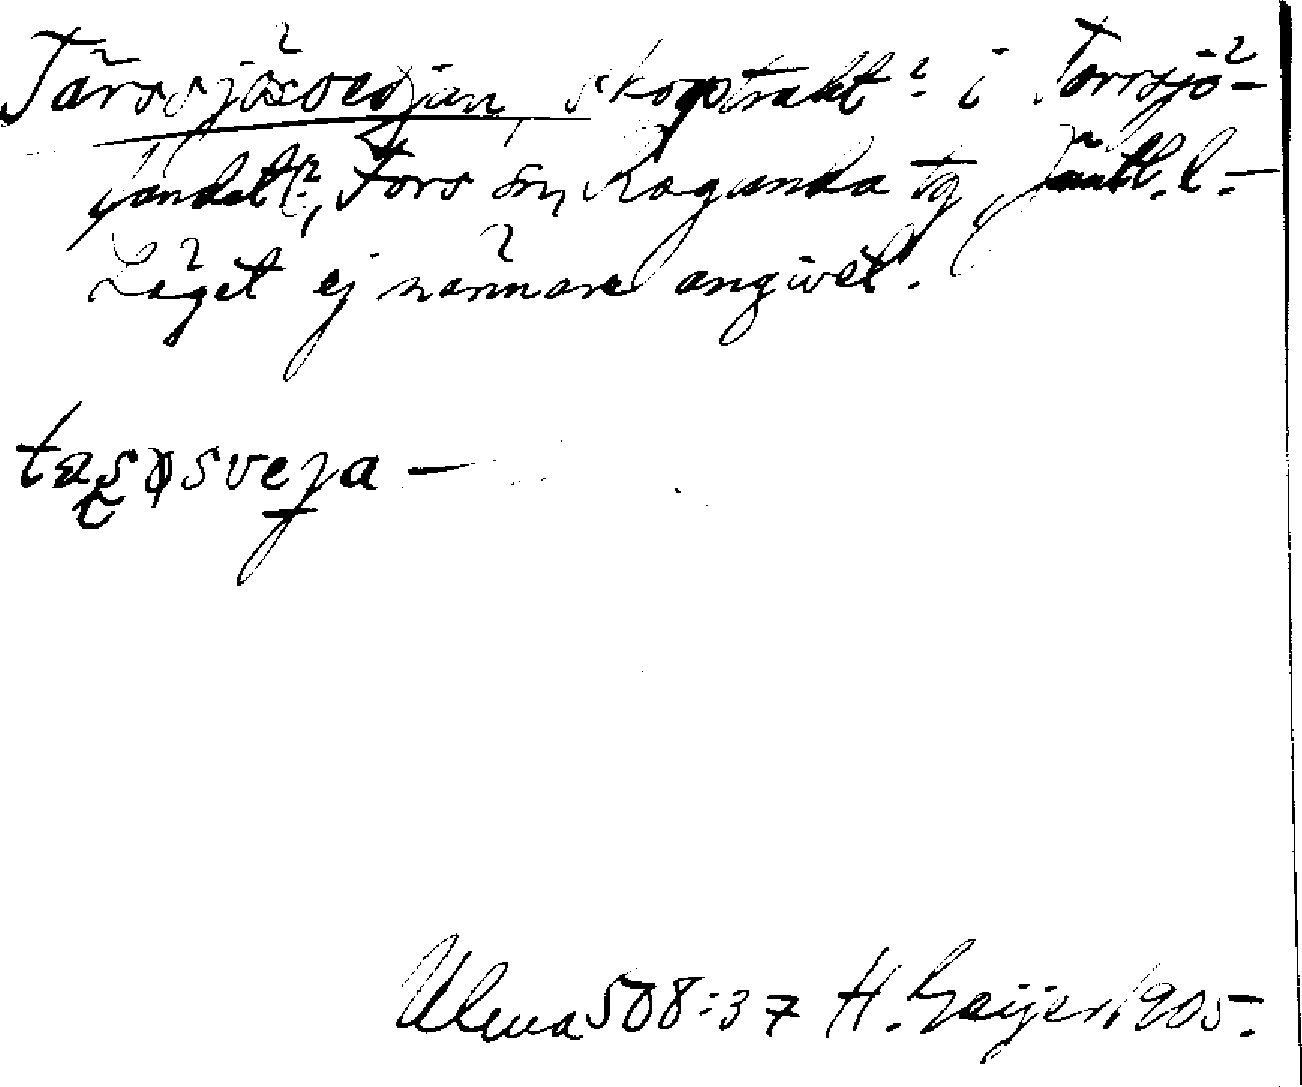 skogstrakt? i Torrsjö-
landet?, Fors sn, Ragunda tg, Jämtl. l. -
Läget ej närmare angivet.
Ulma 508:37 H. Geijer 1905.